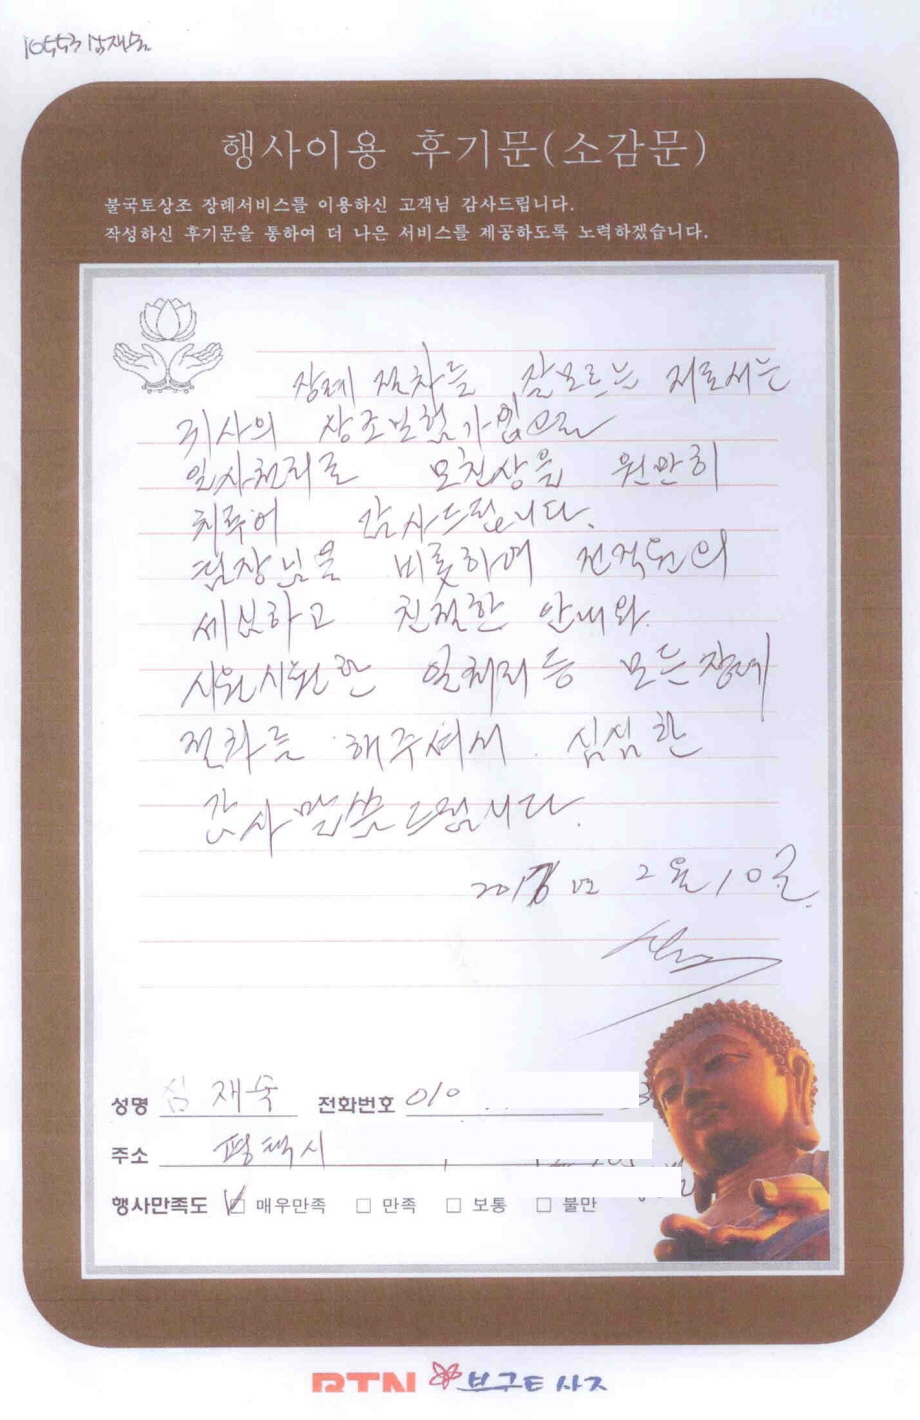 행사이용 후기문(소감문)
불국토상조 장례서비스를 이용하신 고객님 감사드립니다.
작성하신 후기문을 통하여 더 나은 서비스를 제공하도록 노력하겠습니다.
장례 절차를 잘모르는 저로서는
귀사의 상조보험가입으로
일사천리로 모친상을 원만히
치루어 감사드립니다.
팀장님을 비롯하여 전직원의
세심하고 친절한 안내와
시원시원한 일처리등 모든장례
절차를 해주셔서 심심한
감사 말씀드립니다.
년 2월 10일
성명 심재숙 전화번호 010
주소 평택시
행사만족도 ☑ 매우만족 □ 만족 □ 보통 □ 불만
BTN 불국토 상조